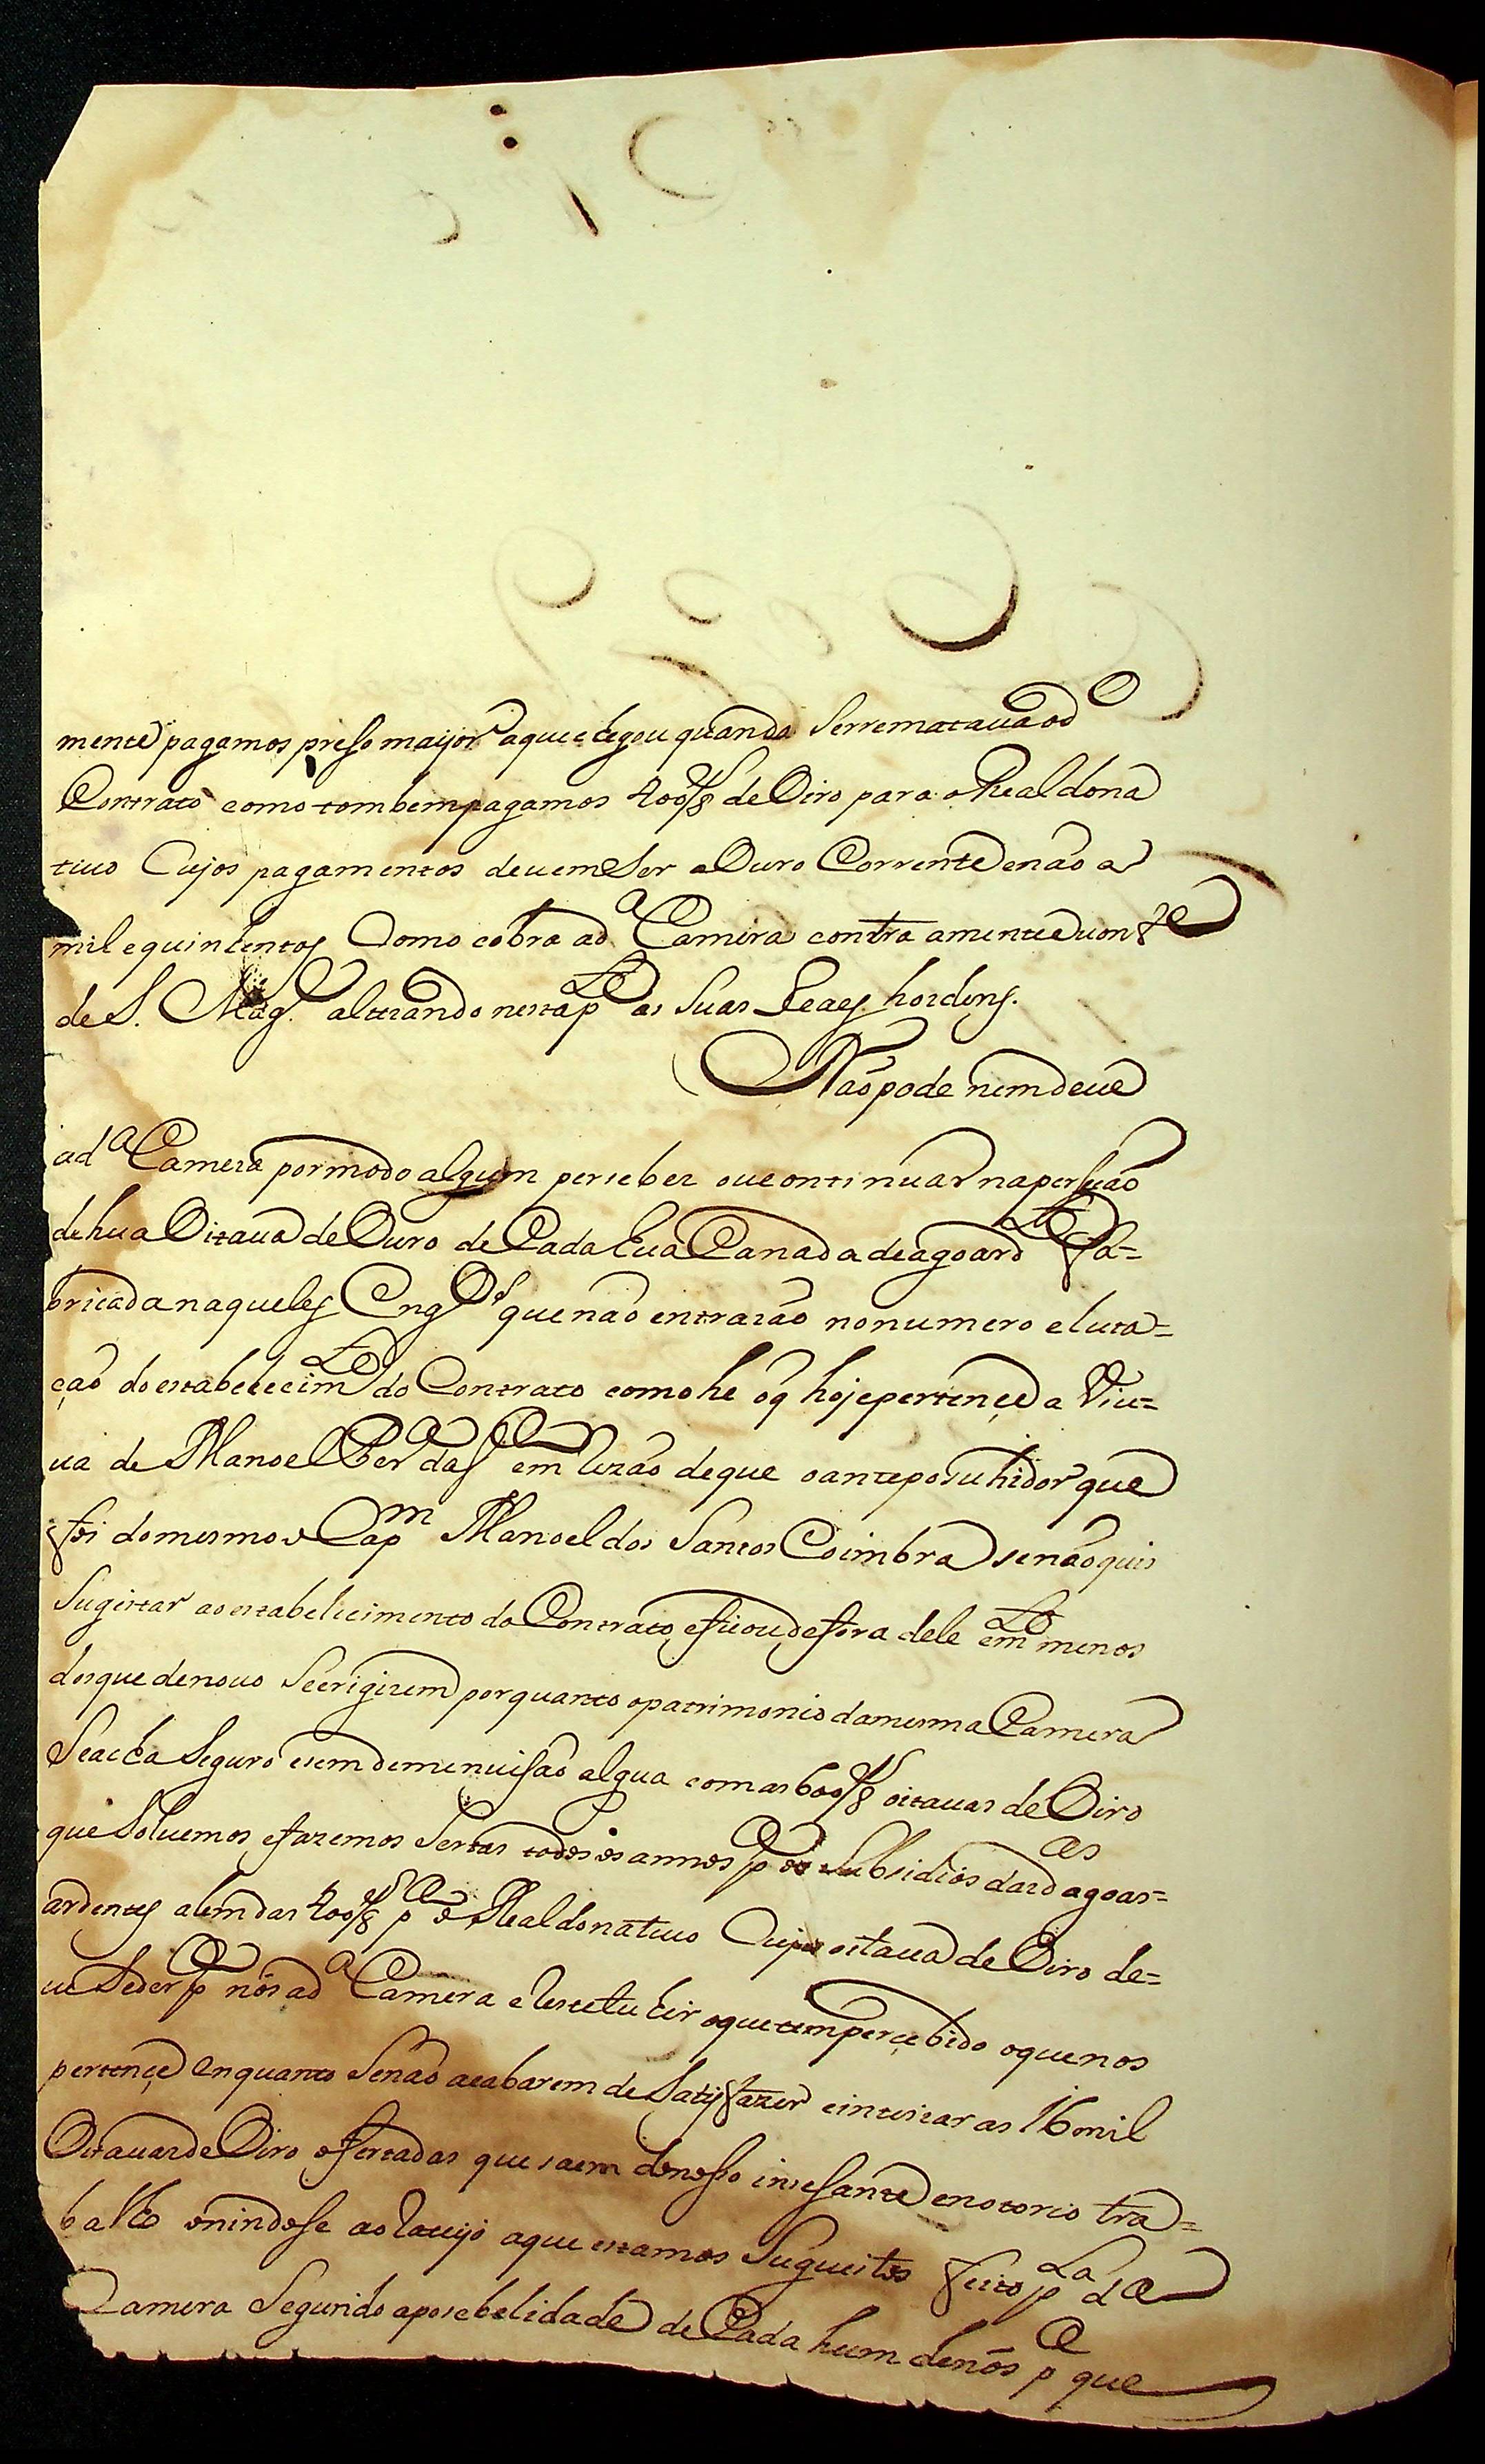 mente pagamos presso mayor aque chegou quando Serrematava od.º
Contrato como tombem pagamos 400/8.as de Oiro para o Real dona
tivo Cujos pagamentos devem Ser a Ouro Corrente e não a
mil e quinhentos Como cobra ad.ª Camera contra amente
de S. Mag.e alterando nesta p.te as Suas Reaes hordens.
Não pode nem deve
ad.ª Camera por modo algum perceber ou continuar na persução
de hua Oitava de Ouro de Cada hua Canada de agoard.te Fa=
bricada naqueles Eng.os que não entrarão no numero e luta=
ção do estabelecim.to do Contrato como he o q hoje pertençe a Viu=
va de Manoel em rezão de que o anteposuhidor que
foi do mesmo o Cap.m Manoel dos Santos Coimbra se não quis
Sugeitar ao estabelicimento do Contrato, e ficou de fora dele em menos
dos que de novo Se erigirem porquanto o patrimonio da mesma Camera
Seacha Seguro e sem demenuisão algua com as 600/8.as oitavas de Oiro
que Soluemos, e fazemos Sertas todos os annos p.a os Subsidios das d.as agoas=
ardentes alem das 400/8.as p.a o Real donativo Cuja oitava de Oiro de=
ve Seder p.a nós ad.ª Camera e Restetuhir o que tem percebido o que nos
pertençe enquanto Senão acabarem de Satisfazer e inteirar as 16 mil
Oitavas de Oiro ofertadas que saem do nosso insesante e notorio tra=
balho onindose ao Rateyo aque estamos Sugueitos feito p.la d.a
Camera Segundo a posebelidade de Cada hum de nós p.a que